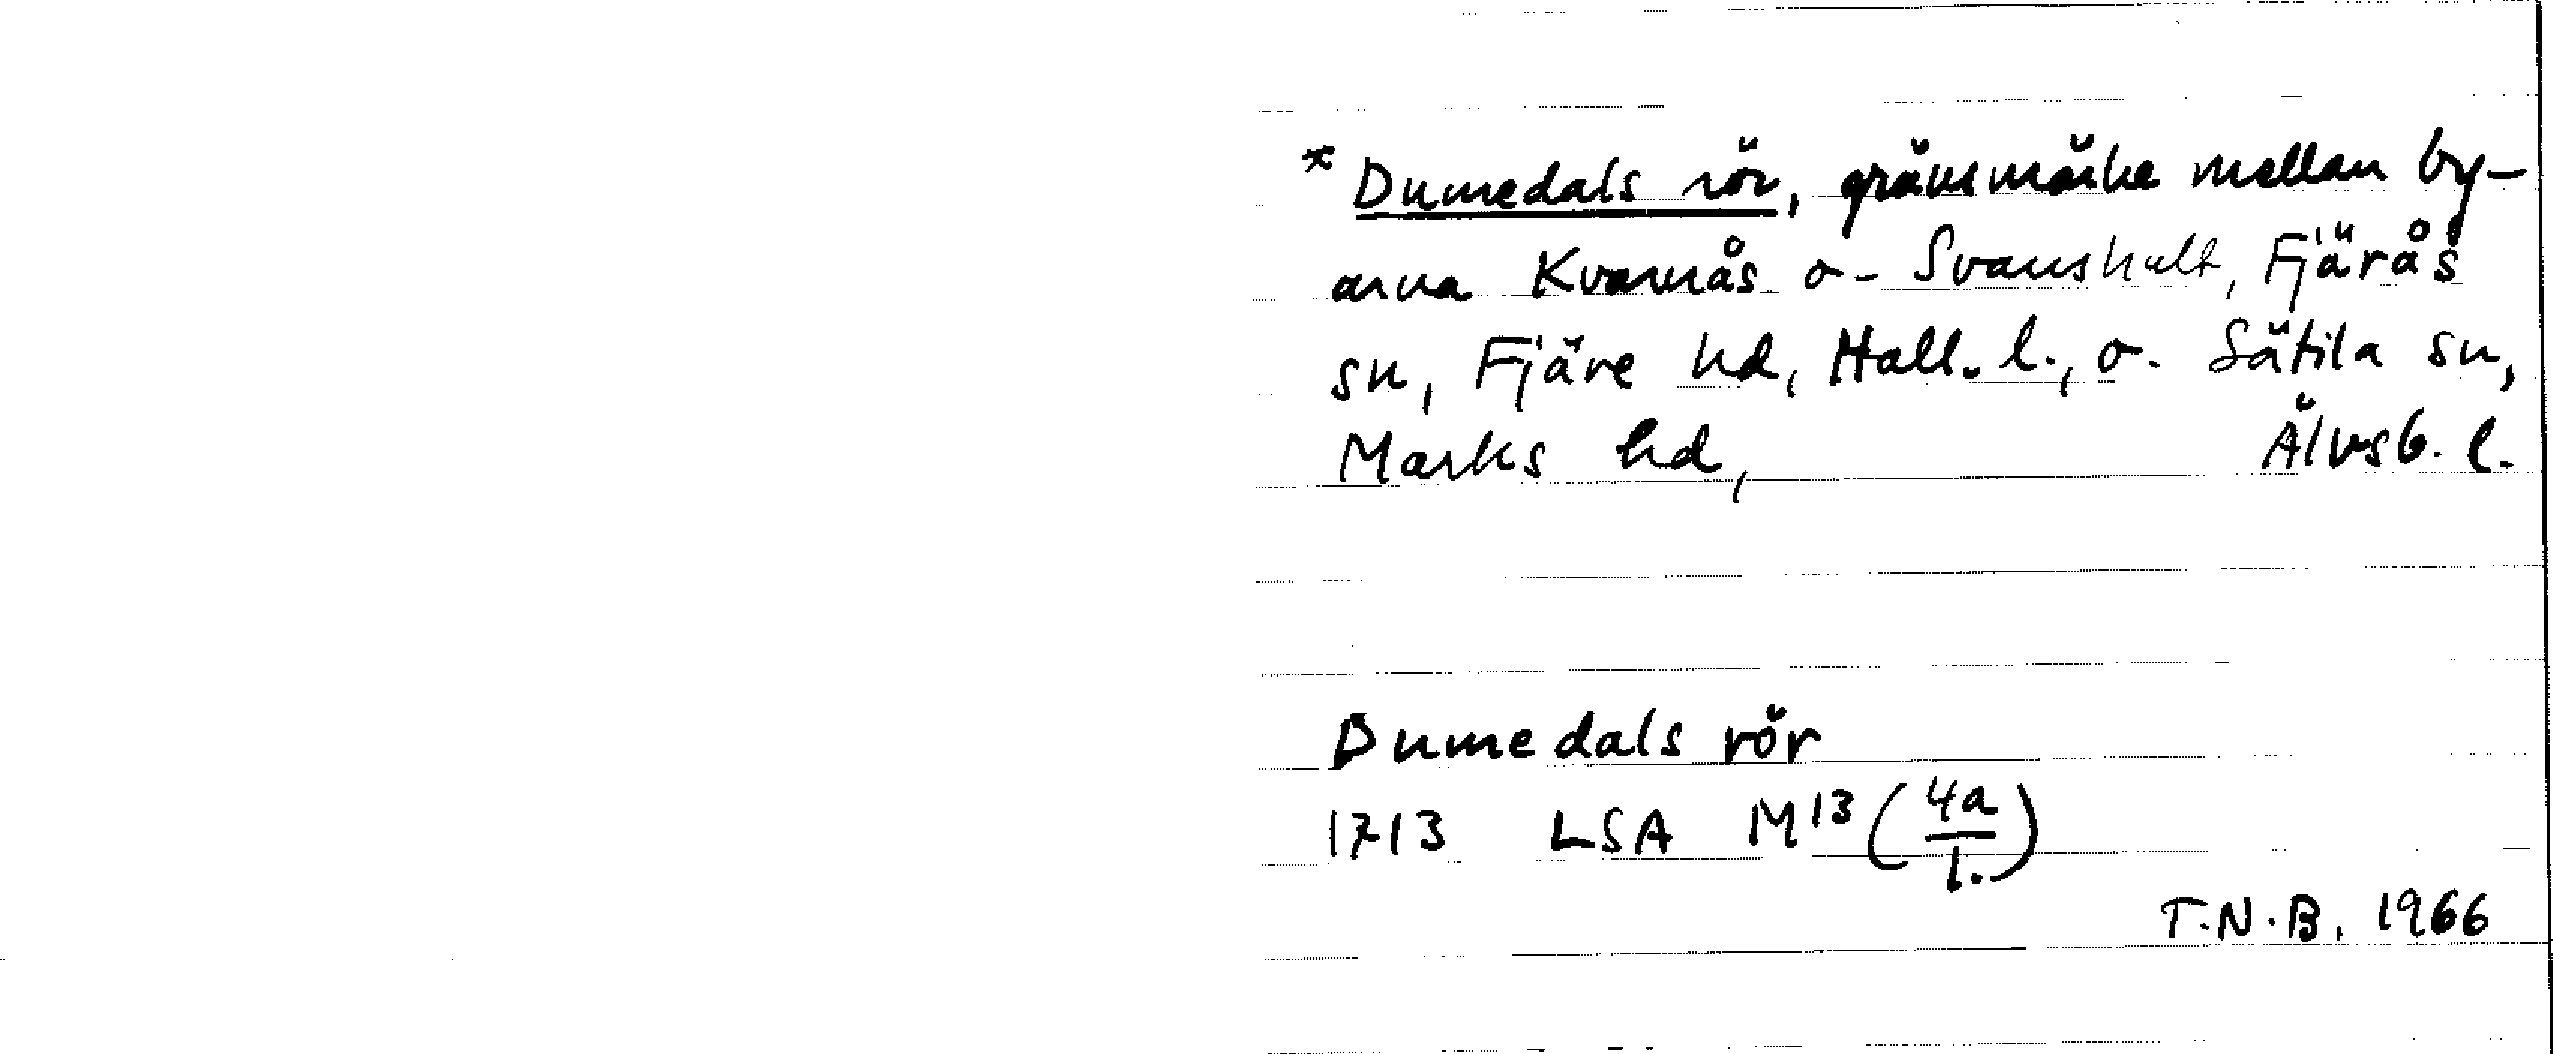 * Dumedals rör, gränsmärke mellan by-
arna Kvarnås o. Svanshult, Fjärås
sn, Fjäre hd, Hall. l., o. Sätila sn,
Marks hd, Älvsb. l.
Dumedals rör
1713 LSA M13 (4a/1.)
T.N.B. 1966